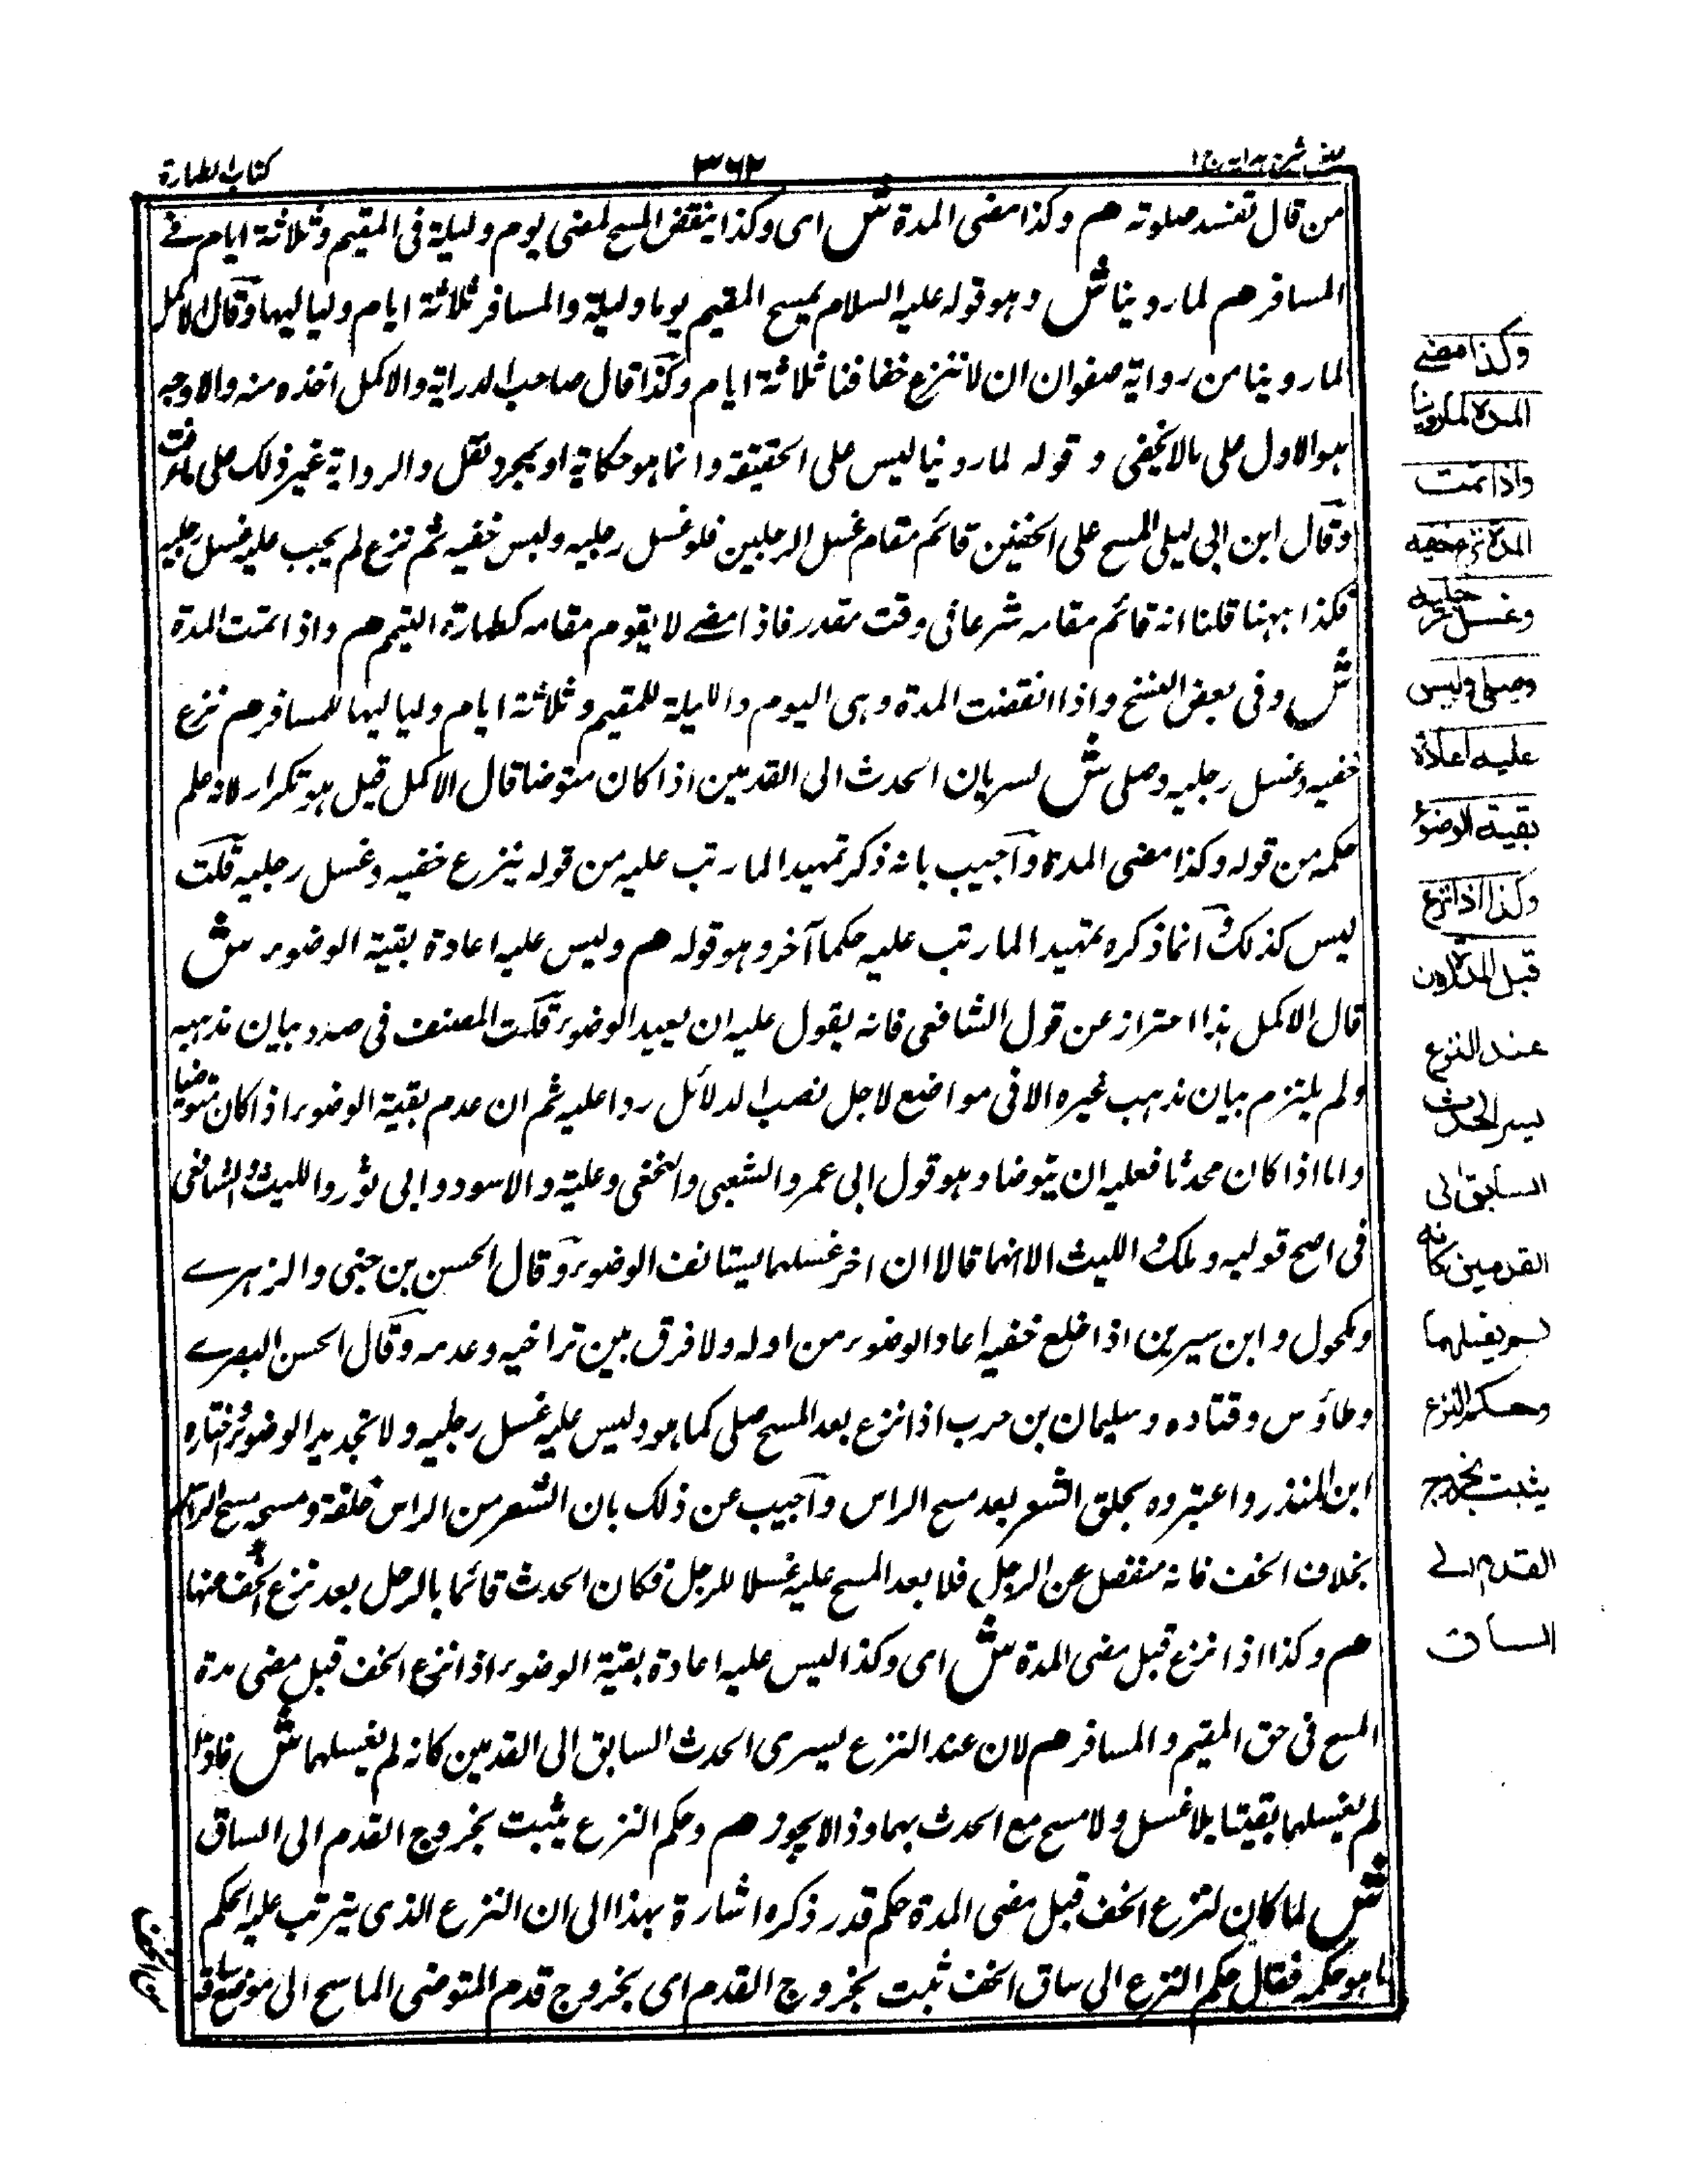 كتاب الطهارة
٣٦٢
عينى شرح هداية ج ١
من قال تفسد صلوته هم وكذا مضى المدة ش اى وكذا ينقض المسح لمضى يوم وليلة فى المقيم وثلاثة ايام فے
المسافر هم لما روينا ش وهو قوله عليه السلام يمسح المقيم يوما وليلة والمسافر ثلاثة ايام ولياليها وقال الاكمل
لما روينا من رواية صفوان ان لا ننزع خفافنا ثلاثة ايام وكذا قال صاحب الدراية والاكمل اخذه منه والاوجه
هو الاول على مالا يخفى و قوله لما روينا ليس على الحقيقة وانما هو حكاية او بمجرد نقل والرواية غير ذلك على ما عرفت
وقال ابن ابى ليلى المسح على الخفين قائم مقام غسل الرجلين فلو غسل رجليه ولبس خفيه ثم نزع لم يجب عليه غسل رجليه
فكذا ههنا قلنا انه قائم مقامه شرعا فى وقت مقدر فاذا مضے لا يقوم مقامه كطهارة التيمم هم واذا تمت المدة
ش وفى بعض النسخ واذا انقضت المدة وهى اليوم والليلة للمقيم وثلاثة ايام ولياليها للمسافر هم نزع
خفيه وغسل رجليه وصلى ش لسريان الحدث الى القدمين اذا كان متوضا قال الاكمل قيل هو تكرار لانه علم
حكمه من قوله وكذا مضى المدة وآجيب بانه ذكر تمهيدا لما رتب عليه من قوله ينزع خفيه وغسل رجليه قلت
ليس كذلك وانما ذكره تمهيدا لما رتب عليه حكما آخر وهو قوله هم وليس عليه اعادة بقية الوضوء ش
قال الاكمل هذا احتراز عن قول الشافعى فانه يقول عليه ان يعيد الوضوء قلت المصنف فى صدد بيان مذهبه
ولم يلتزم بيان مذهب غيره الا فى مواضع لاجل نصب الدلائل ردا عليه ثم ان عدم بقية الوضوء اذا كان متوضيا
واما اذا كان محدثا فعليه ان يتوضا وهو قول ابى عمر والشعبى والنخعى وعلية والاسود وابى ثور والليث والشافعى
فى اصح قوليه وملك والليث الا انهما قالا ان اخر غسلهما يستانف الوضوء وقال الحسن بن حيى والزهرے
ومكحول وابن سيرين اذا خلع خفيه اعاد الوضوء من اوله ولا فرق بين تراخيه وعدمه وقال الحسن البصرے
وطاؤس وقتاده وسليمان بن حرب اذا نزع بعد المسح صلى كما هو وليس عليه غسل رجليه ولا تجديد الوضوء واختاره
ابن المنذر واعتبروه بحلق الشعر بعد مسح الراس وآجيب عن ذلك بان الشعر من الراس خلقة ومسحه مسح الراس
بخلاف الخف فانه منفصل عن الرجل فلا يعد المسح عليه غسلا للرجل فكان الحدث قائما بالرجل بعد نزع الخف عنها
هم وكذا اذا نزع قبل مضى المدة ش اى وكذا ليس عليه اعادة بقية الوضوء اذا نزع الخف قبل مضى مدة
المسح فى حق المقيم والمسافر هم لان عند النزع يسرى الحدث السابق الى القدمين كانه لم يغسلهما ش فاذا
لم يغسلهما بقيتا بلا غسل ولا مسح مع الحدث بهما وذا لايجوز هم وحكم النزع يثبت بخروج القدم الى الساق
ش لما كان لنزع الخف قبل مضى المدة حكم قدر ذكره اشارة بهذا الى ان النزع الذى يترتب عليه الحكم
ما هو حكمه فقال حكم النزع الى ساق الخف ثبت بخروج القدم اى بخروج قدم المتوضى الماسح الى موضع
وكذا مضے
المدة لما روينا
واذا تمت
المدة نزع خفيه
وغسل رجليه
وصلى وليس
عليه اعادة
بقية الوضوء
وكذا اذا نزع
قبل المدة لان
عند النزع
يسرى الحدث
السابق الى
القدمين كانه
لم يغسلهما
وحكم النزع
يثبت بخروج
القدم الے
الساق